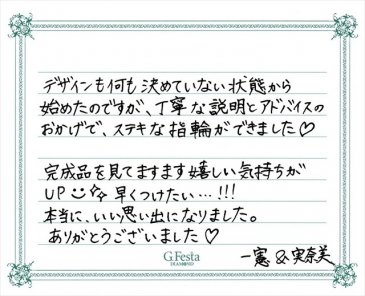 デザインも何も決めていない状態から
始めたのですが、丁寧な説明とアドバイスの
おかげで、ステキな指輪ができました♡
完成品を見てますます嬉しい気持ちが
UP 早くつけたい…!!!
本当に、いい思い出になりました。
ありがとうございました♡
G.Festa
DIAMOND
一憲&実奈美